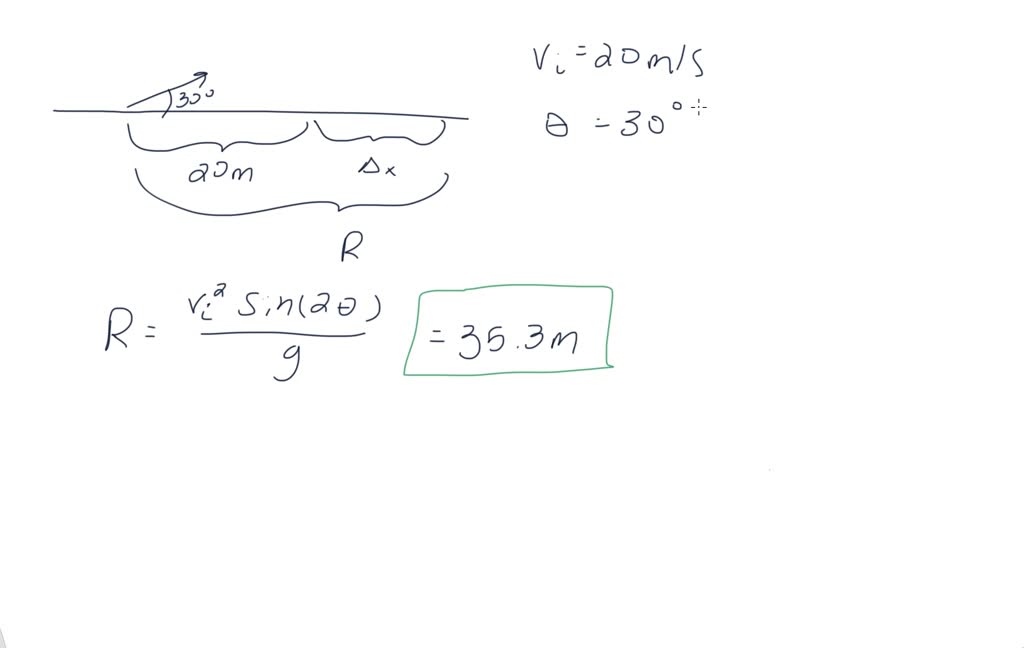 30°
20m
Δx
R
vi = 20m/s
θ = 30°
R = vi² sin(2θ) / g = 35.3m